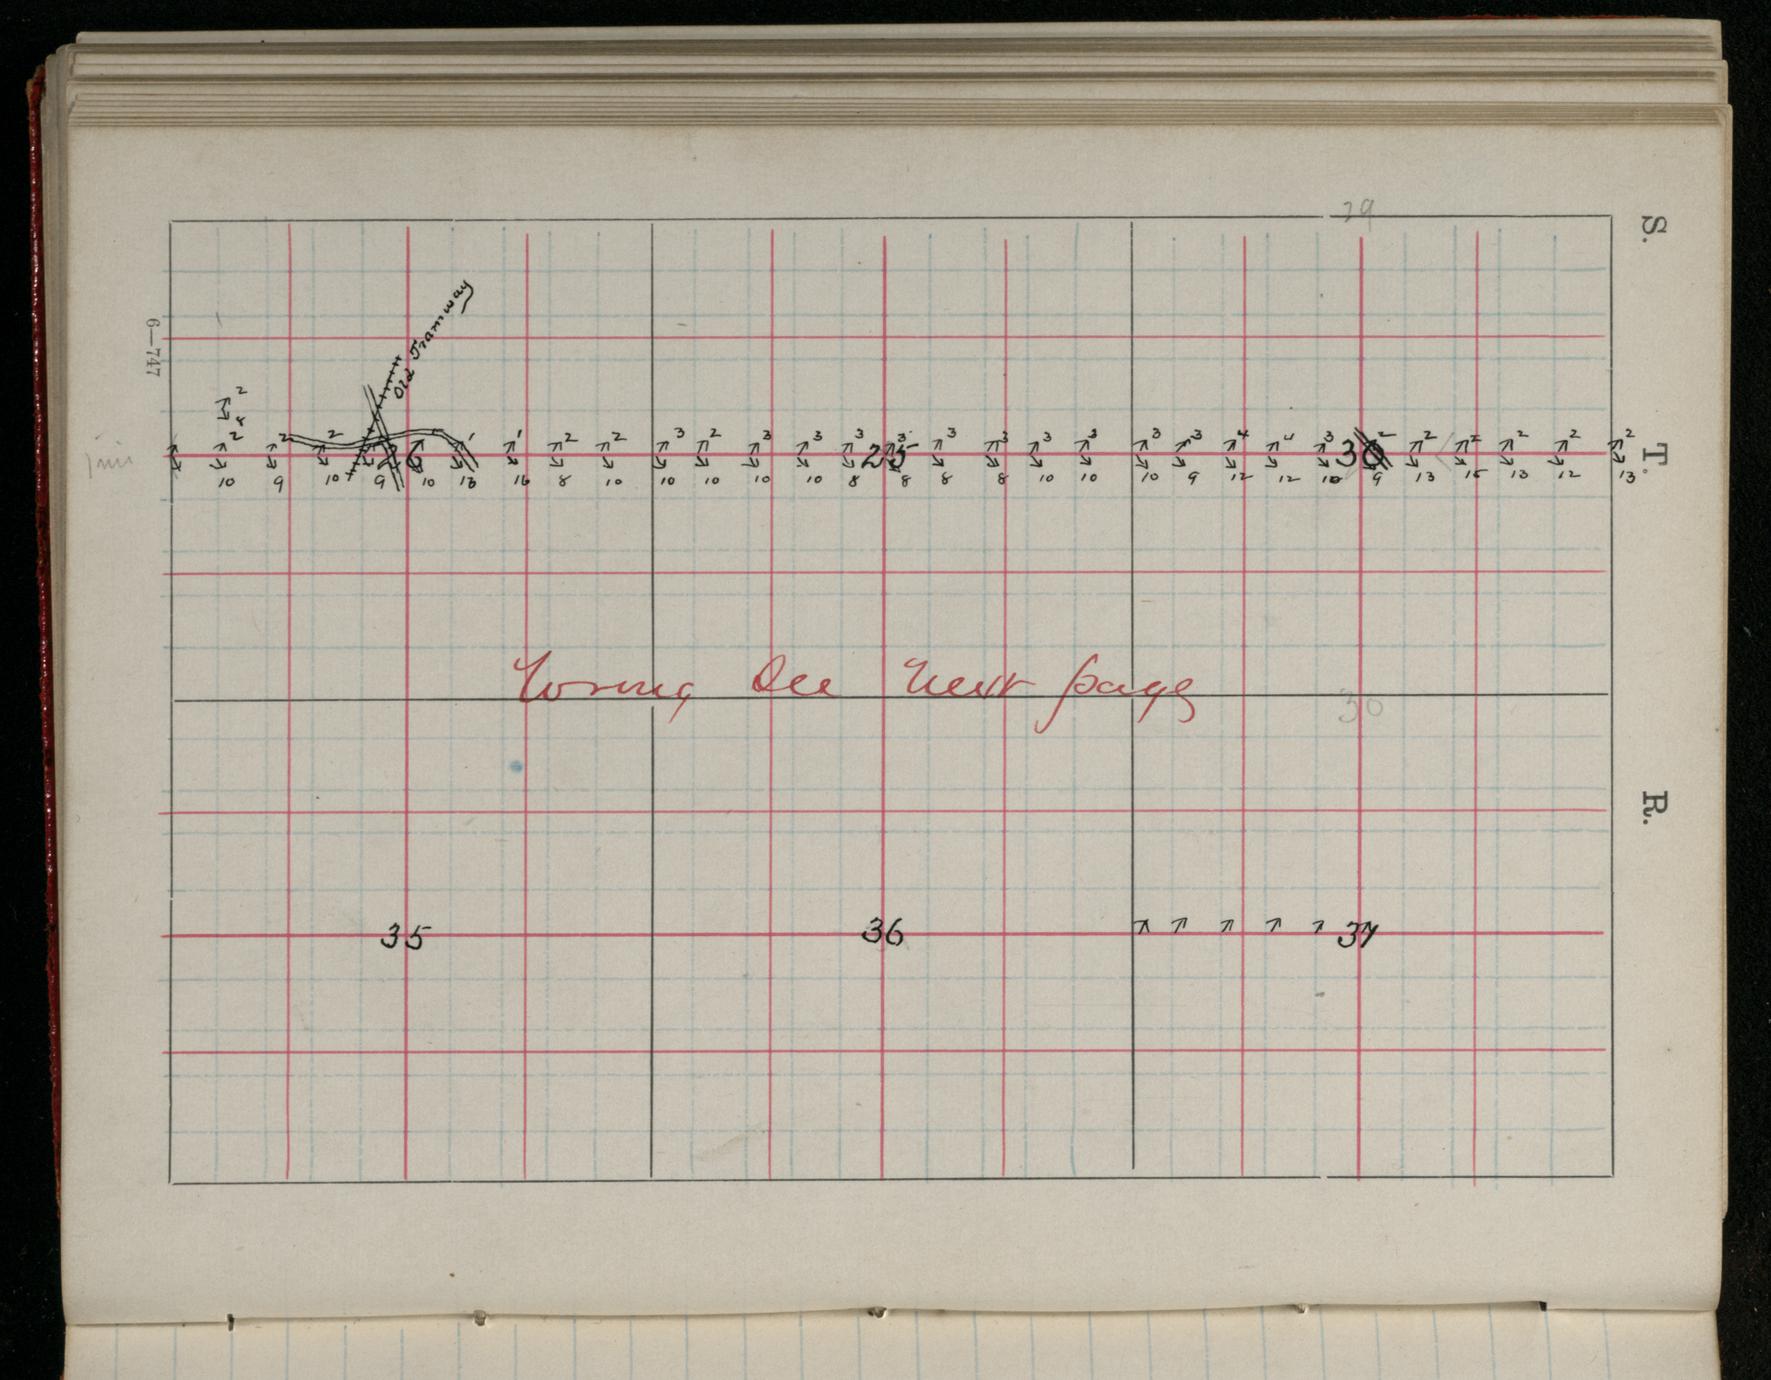 29
S.
6—747
Old Tramway
2
8
2 2 2 1 1 2 2 3 2 3 3 3 3 3 3 3 3 3 3 4 4 3 2 2 2 2 2 2
26 25 30
T.
10 9 10 9 10 13 16 8 10 10 10 10 10 8 8 8 8 10 10 10 9 12 12 10 9 13 15 13 12 13
Wrong See Next page
30
R.
35 36 31